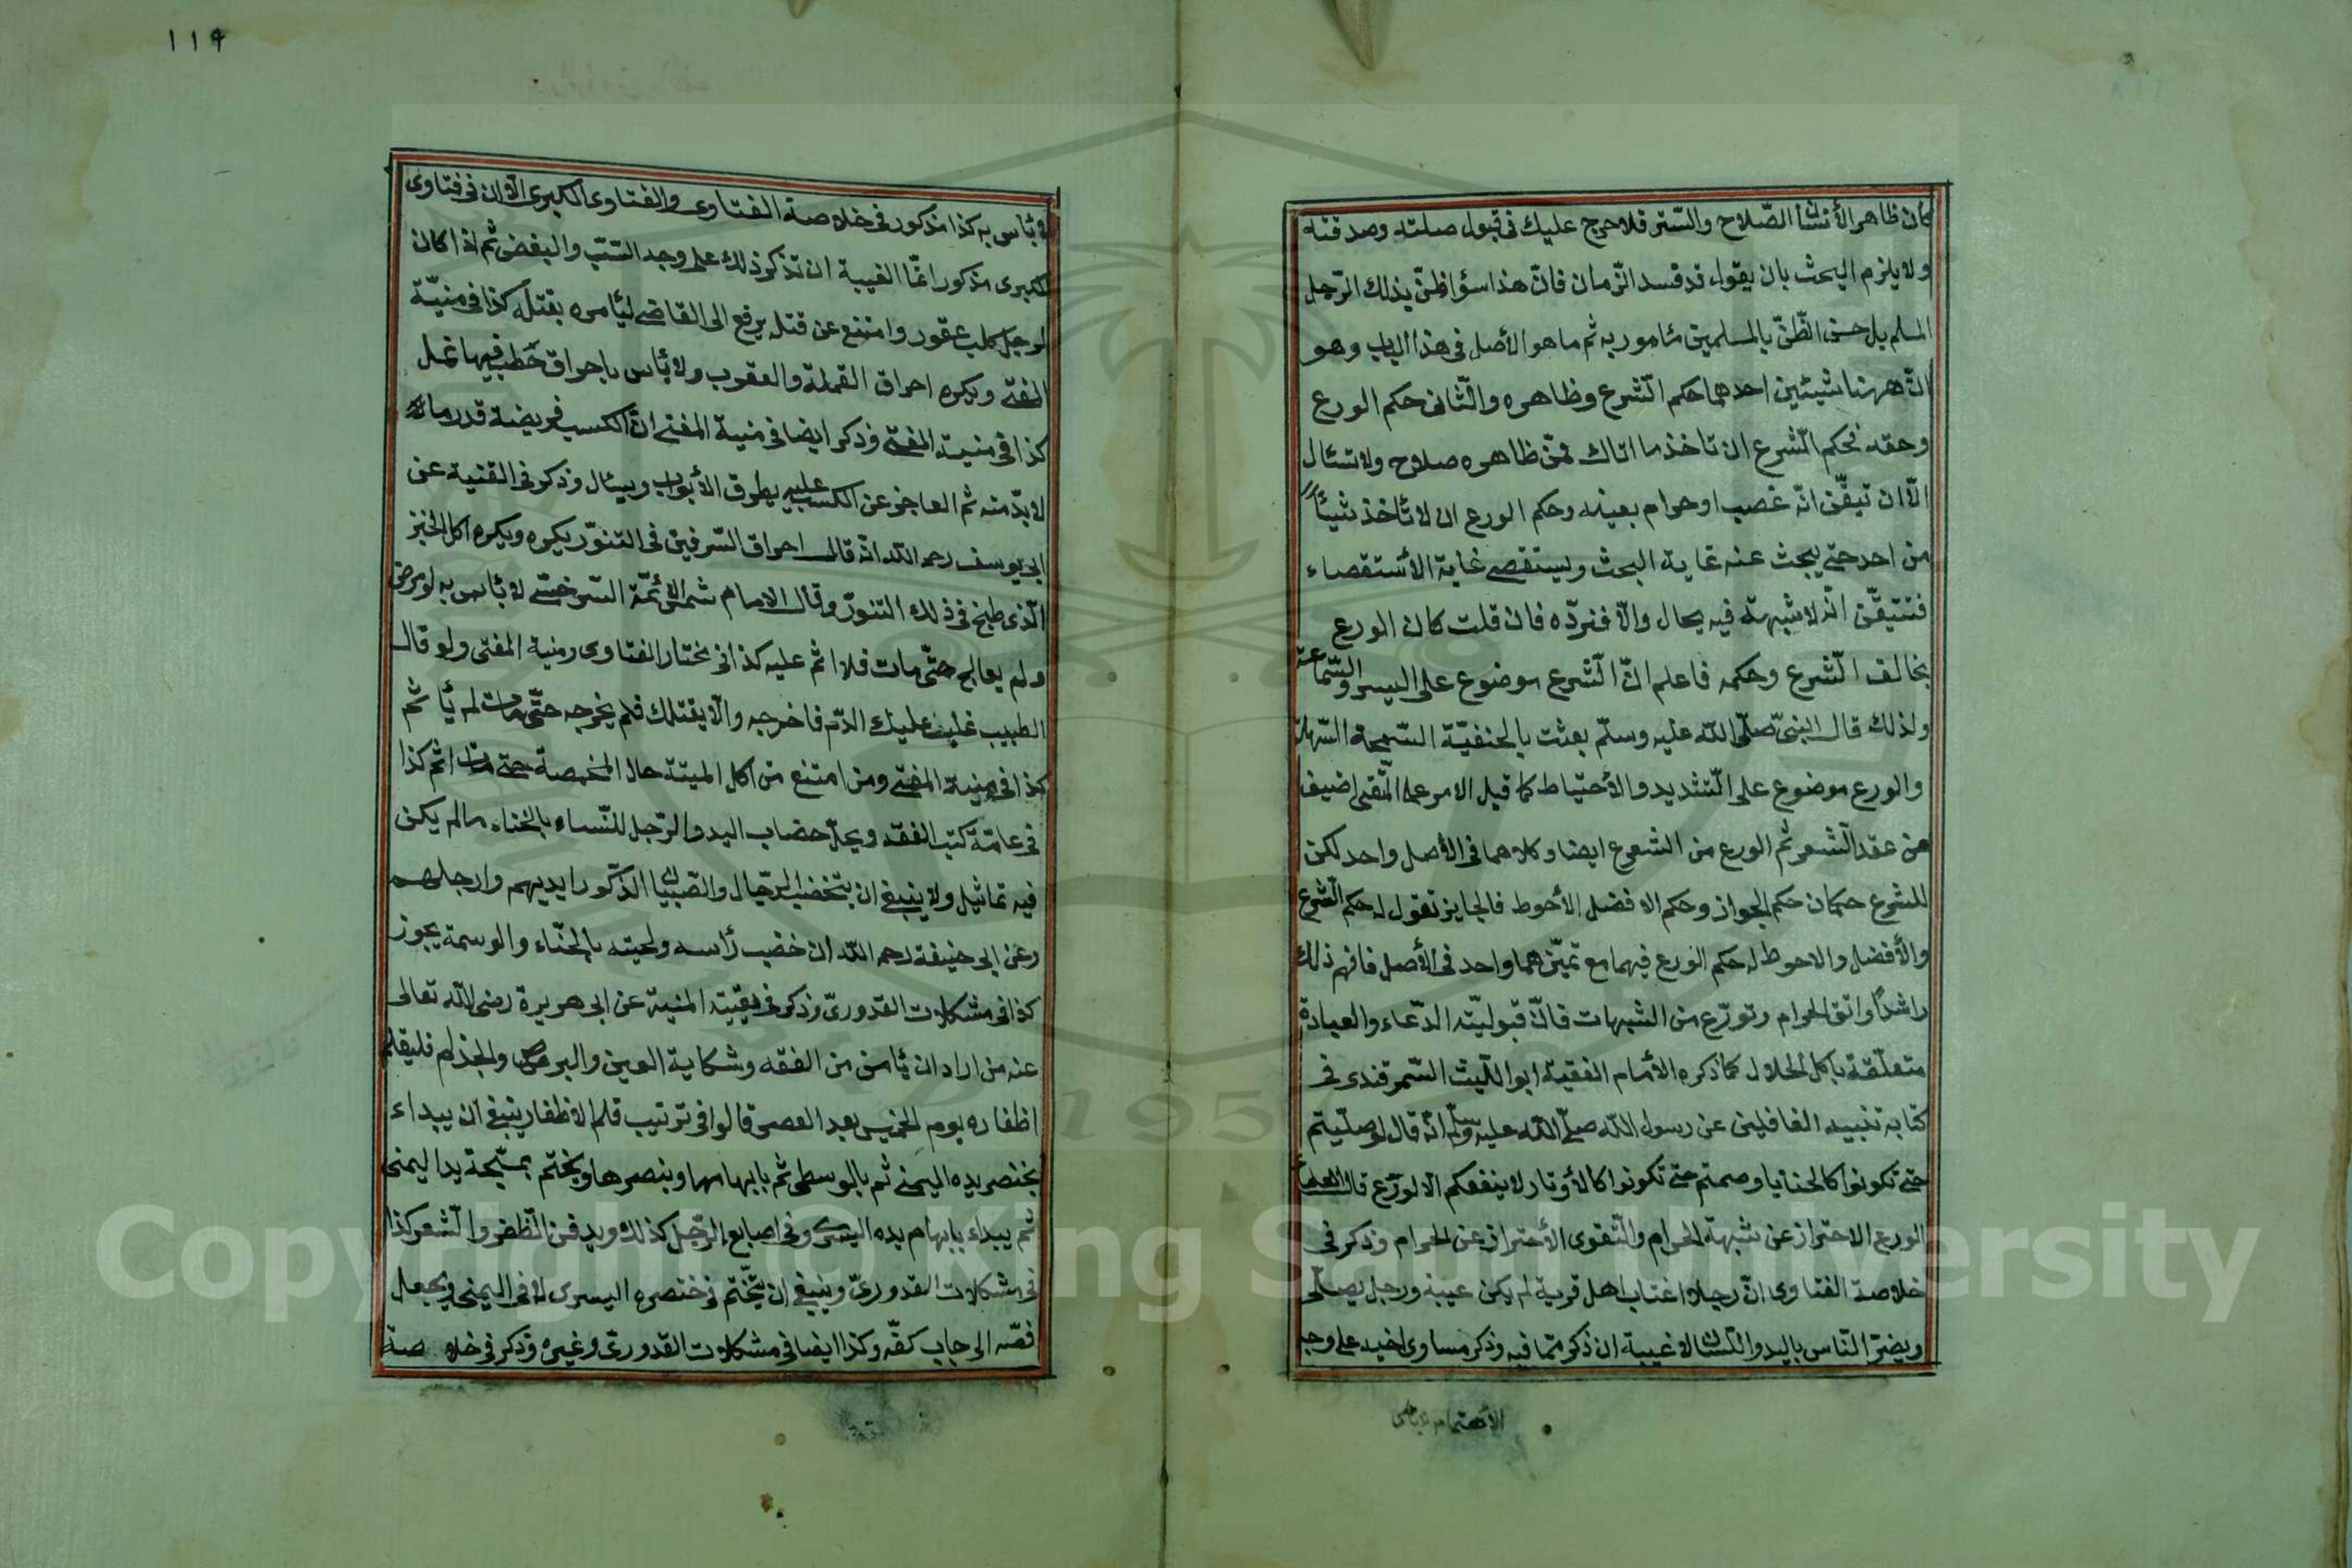 كان ظاهر الأنسان الصّلاح والسّتر فلا حرج عليك فى قبول صلته وصدقته
ولا يلزم البحث بان يقول قد فسد الزّمان فانّ هذا سؤ الظنّ بذلك الرّجل
المسلم بل حسن الظّنّ بالمسلمين مأمور به ثم ما هو الأصل فى هذا الباب وهو
انّ ههنا شيئين احدهما حكم الشّرع وظاهره والثّانى حكم الورع
وحقه فحكم الشّرع ان تاخذ ما اتاك ممّن ظاهره صلاح ولا تسئال
الّا ان تيقّن انّه غصب او حرام بعينه وحكم الورع ان لا تأخذ شيئاً
من احد حتى يبحث عنه غاية البحث ويستقصى غاية الأستقصاء
فتتيقّن انّه لا شبهة فيه بحال والّا فنردّه فان قلت كان الورع
يخالف الشّرع وحكمه فاعلم انّ الشّرع موضوع على اليسر والسّماعة
ولذلك قال النبىّ صلّى اللّه عليه وسلّم بعثت بالحنفيّة السّمحة السّهلة
والورع موضوع على التّشديد والأحتياط كما قيل الامر على المتّقى اضيف
من عقد الشّعر ثم الورع من الشرع ايضا وكلاهما فى الأصل واحد لكن
للشرع حكمان حكم الجواز وحكم الافضل الأحوط فالجايز نقول له حكم الشّرع
والأفضل والاحوط له حكم الورع فيهما مع تميّزهما واحد فى الأصل فافهم ذلك
راشدًا واتق الحرام وتورّع من الشبهات فانّ قبوليّته الدّعاء والعبادة
متعلّقة باكل الحلال كما ذكره الأمام الفقيه ابو اللّيث السّمرقندى فى
كتابه تنبيه الغافلين عن رسول اللّه صلّى اللّه عليه وسلّم انّه قال لو صلّيتم
حتى تكونوا كالحنايا وصمتم حتى تكونوا كالأوتار لا ينفعكم الّا لورّع قال العلماء
الورع الاحتراز عن شبهة الحرام والتّقوى الأحتراز عن الحرام وذكر فى
خلاصة الفتاوى انّ رجلا اغتاب اهل قرية لم يكن غيبة ورجل يصلّى
ويضرّ النّاس باليد واللسان لا غيبة ان ذكر بما فيه وذكر مساوى اخيه على وجه
الأهتمام لا بأس
١١٩
لا بأس به كذا مذكور فى خلاصة الفتاوى والفتاوى الكبرى الّا ان فى فتاوى
الكبرى مذكور انمّا الغيبة ان تذكر ذلك على وجه السّبّ والبغض ثم اذا كان
لرجل كلب عقور وامتنع عن قتله يرفع الى القاضى ليأمره بقتله كذا فى منيّة
المفتى ويكره احراق القملة والعقرب ولا بأس باحراق حطب فيها نمل
كذا فى منية المفتى وذكر ايضا فى منية المفتى انّ الكسب فريضة قدر ما
لا بدّ منه ثم العاجز عن الكسب عليه يطوف الأبواب ويسئال وذكر فى القنية عن
ابى يوسف رحمه اللّه انّه قال احراق السّرقين فى التنوّر يكره ويكره اكل الخبز
الّذى طبخ فى ذلك التنوّر وقال الامام شمس الأئمّة السّرخسّى لا بأس به لو مرض
ولم يعالج حتّى مات فلا اثم عليه كذا فى مختار الفتاوى ومنية المفتى ولو قال
الطبيب غلب عليك الدّم فاخرجه والّا يقتلك فلم يخرجه حتّى مات لم يأثم
كذا فى منية المفتى ومن امتنع من اكل الميتة حال المخمصة حتى مات اثم كذا
فى عامّة كتب الفقه ويحلّ خضاب اليد والرّجل للنّساء بالحناء ما لم يكن
فيه تماثيل ولا ينبغى ان يتخضب الرّجال والصّبيان الذّكور ايديهم وارجلهم
وعن ابى حنيفة رحمه اللّه ان خضب رأسه ولحيته بالحنّاء والوسمة يجوز
كذا فى مشكلات القدورىّ وذكر فى بقيّة المنية عن ابى هريرة رضى اللّه تعالى
عنه من اراد ان يأمن من الفقه وشكاية العين والبرص والجذام فليقلم
اظفاره يوم الخميس بعد العصر قالوا فى ترتيب قلم الاظفار ينبغى ان يبداء
بخنصر يده اليمنى ثم بالوسطى ثم بابهامها وبنصرها ويختم بمسّبحة يد اليمنى
ثم يبداء بابهام يده اليسرى وفى اصابع الرّجل كذلك ويدفن الّظفر والشّعر كذا
فى مشكلات القدورىّ وينبغى ان يتّختم فى خنصره اليسرى لا فى اليمنى ويجعل
فصّه الى جانب كفّه وكذا ايضا فى مشكلات القدورىّ وغيره وذكر فى خلاصة
Copyright © King Saud University